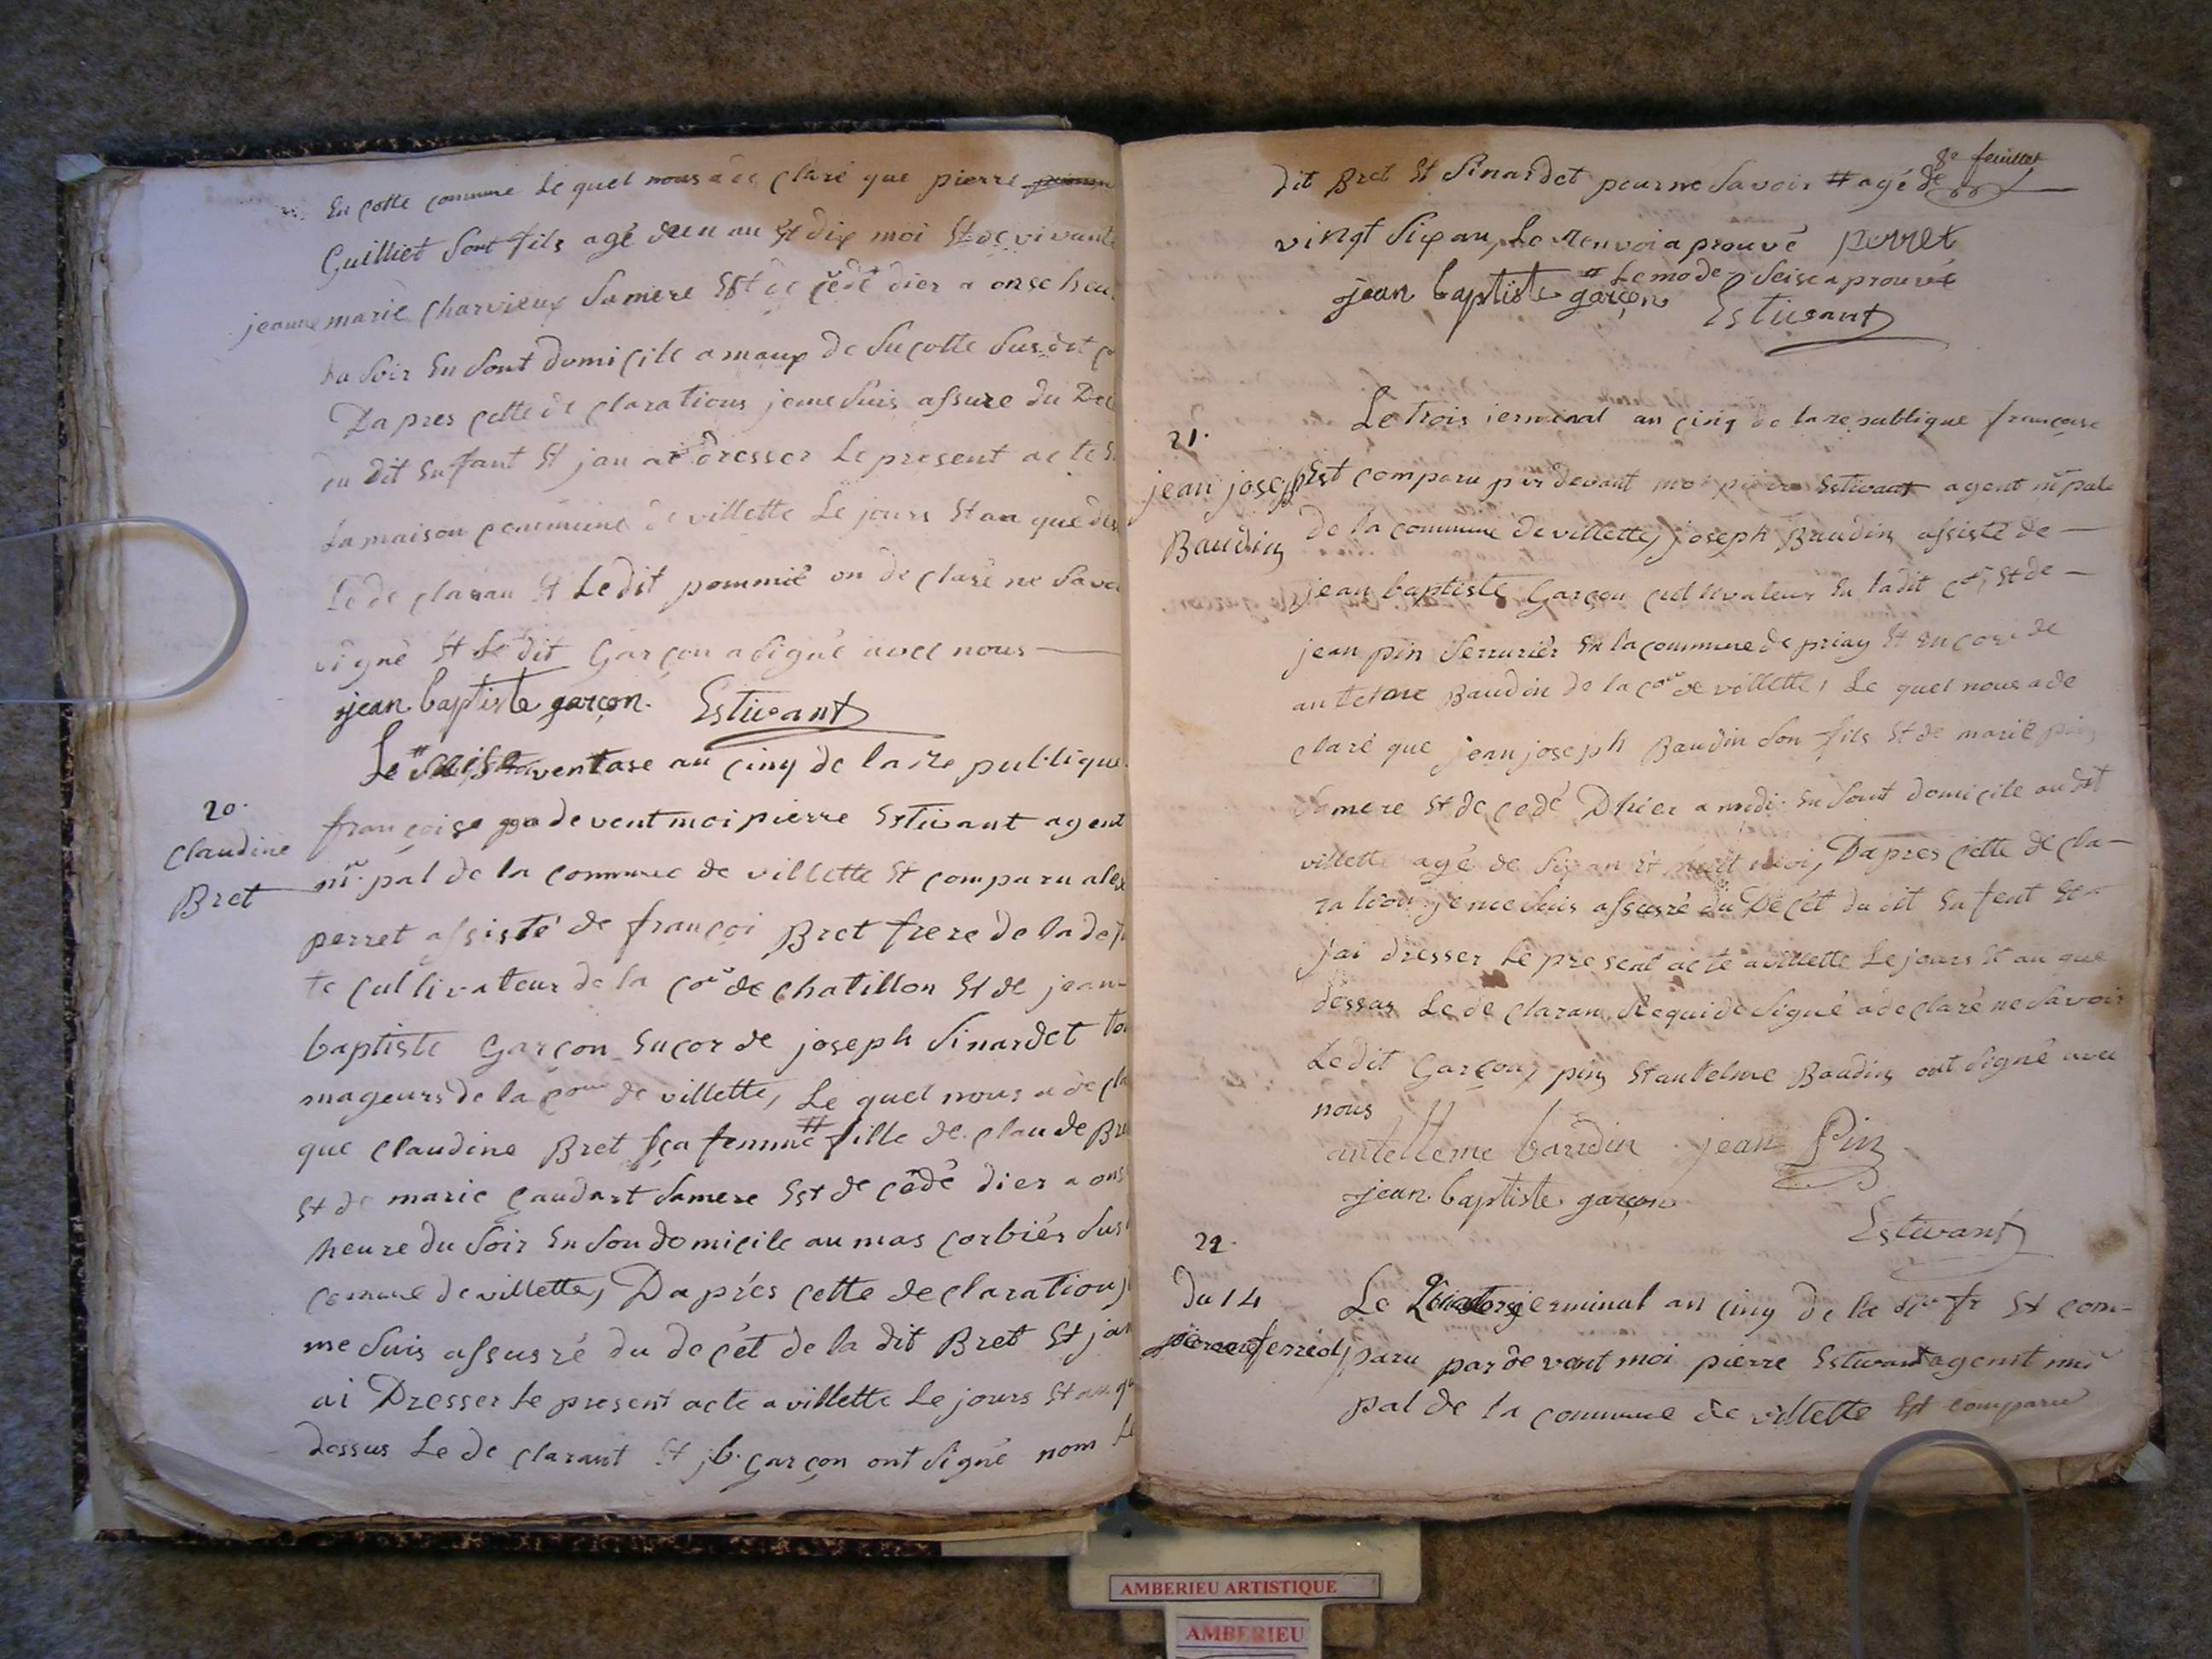 En cotte commune Le quel nous a de claré que pierre
Guilliet Sont fils agé deun an Et dix moi Et de vivante
jeanne marie Charvieux Samere Est de cedé dier a onse heu
du Soir En Sont domicile a maux de Sucotte Sus dit
Dapres cette de clarations jeme Suis assure du Dec
du dit Enfant Et jan ai dresser Le present acte
La maison commune de villette Le jours Et an que des
Le de claran Et Le dit pommié on de claré ne Savo
signé Et Le dit Garçon a signé avec nous
jean baptiste garçon. Estivant
Le # ventase an cinq de la re publique
20.
Claudine
Bret
françoise pa devent moi pierre Estivant agent
m. pal de la commune de villette Et comparu alex
perret assisté de françoi Bret frere de la def
te Cultivateur de la co de chatillon Et de jean
baptiste Garçon Encor de joseph Sinardet to
mageurs de la com de villette, Le quel nous a de cla
que Claudine Bret sça femme # fille de Claude Bre
Et de marie Gaudart Samere Est de cédé dier a ons
heure du Soir En Son domicile au mas Corbiér Sus
Commune de villette, Daprés cette de claration j
me Suis assusré du de cét de la dit Bret Et jan
ai Dresser Le present acte a villette Le jours Et an qu
dessus Le de clarant Et jb. Garçon ont Signé nom Le
8e feuillet
dit Bret Et Sinardet pour ne Savoir # agé de
vingt Six an, Le Renvoi a prouvé perret
# Le mo de Seise a prouvé
jean baptiste garçon Estivant
21.
jean joseph
Baudin
Le trois jerminal an cinq de la re publique françoise
Est comparu par devant moi pierre Estivant agent m pal
de la commune de villette, joseph Baudin assisté de
jean baptiste Garçon Cultivateur En la dit Et de
jean pin Serrurier En la commune de priay Et encore de
antelme Baudin de la co de villette, Le quel nous a de
claré que jean joseph Baudin Son fils Et de marie pin
Samere Et de cedé Dhier a midi En Sont domicile au dit
villette agé de Six an Et moi, Dapres cette de cla
ration jeme Suis assusré du Décét du dit Enfent Et
jai dresser Le present acte a villette Le jours Et an que
dessus Le de claran Requi de Signé a de claré ne Savoir
Le dit Garçon, pin Et antelme Baudin ont Signé avec
nous
antelleme baudin jean Pin
jean baptiste garçon
Estivant
22.
Du 14
ferred
Le jerminal an cinq de la fr Et com=
paru par de vent moi pierre Estivant agent mu
pal de la commune de villette Est comparu
AMBERIEU ARTISTIQUE
AMBERIEU